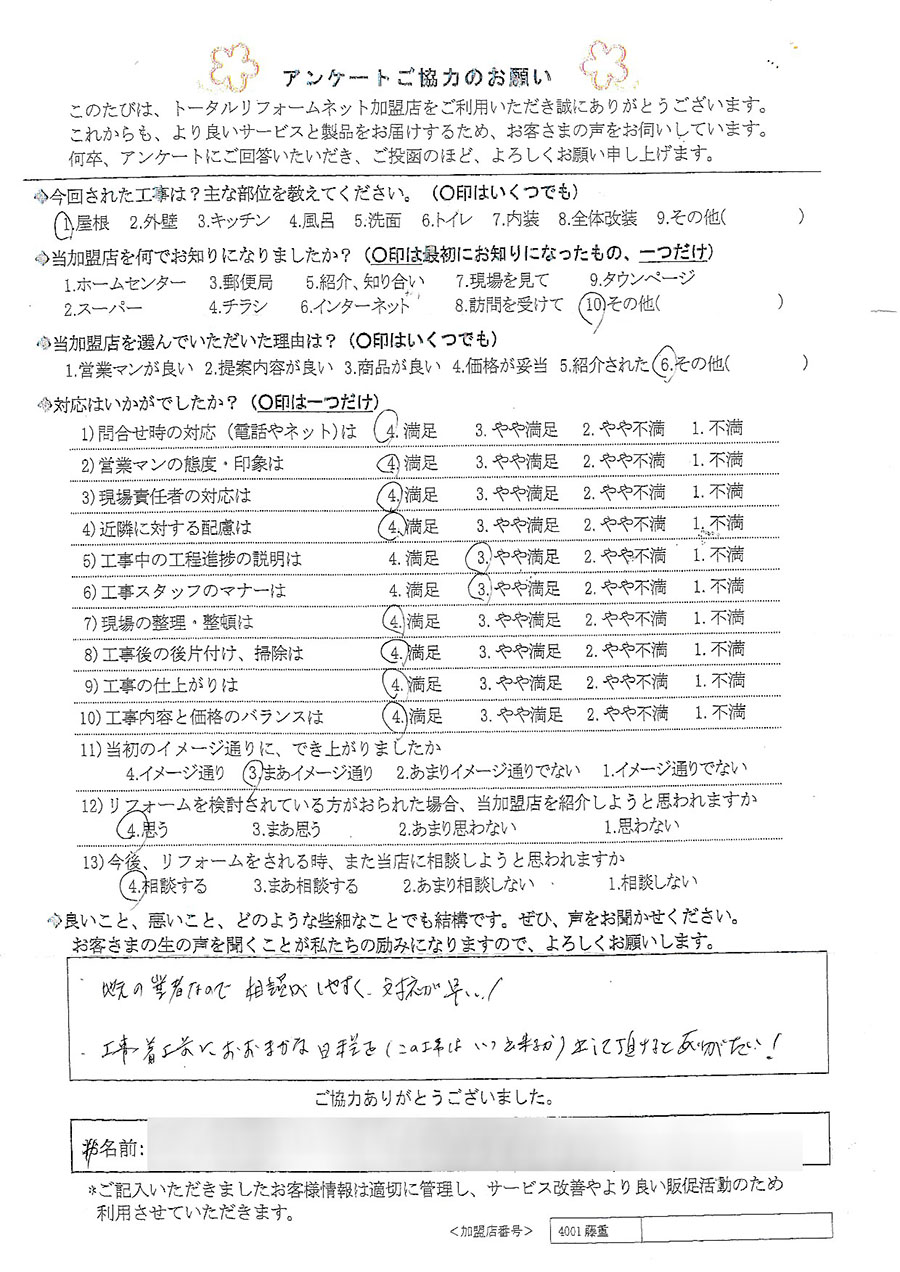 アンケートご協力のお願い
このたびは、トータルリフォームネット加盟店をご利用いただき誠にありがとうございます。
これからも、より良いサービスと製品をお届けするため、お客さまの声をお伺いしています。
何卒、アンケートにご回答いたいだき、ご投函のほど、よろしくお願い申し上げます。
今回された工事は？主な部位を教えてください。（〇印はいくつでも）
1.屋根 2.外壁 3.キッチン 4.風呂 5.洗面 6.トイレ 7.内装 8.全体改装 9.その他( )
当加盟店を何でお知りになりましたか？（〇印は最初にお知りになったもの、一つだけ）
1.ホームセンター 3.郵便局 5.紹介、知り合い 7.現場を見て 9.タウンページ
2.スーパー 4.チラシ 6.インターネット 8.訪問を受けて 10.その他( )
当加盟店を選んでいただいた理由は？（〇印はいくつでも）
1.営業マンが良い 2.提案内容が良い 3.商品が良い 4.価格が妥当 5.紹介された 6.その他( )
対応はいかがでしたか？（〇印は一つだけ）
1)問合せ時の対応（電話やネット)は 4.満足 3.やや満足 2.やや不満 1.不満
2)営業マンの態度・印象は 4.満足 3.やや満足 2.やや不満 1.不満
3)現場責任者の対応は 4.満足 3.やや満足 2.やや不満 1.不満
4)近隣に対する配慮は 4.満足 3.やや満足 2.やや不満 1.不満
5)工事中の工程進捗の説明は 4.満足 3.やや満足 2.やや不満 1.不満
6)工事スタッフのマナーは 4.満足 3.やや満足 2.やや不満 1.不満
7)現場の整理・整頓は 4.満足 3.やや満足 2.やや不満 1.不満
8)工事後の後片付け、掃除は 4.満足 3.やや満足 2.やや不満 1.不満
9)工事の仕上がりは 4.満足 3.やや満足 2.やや不満 1.不満
10)工事内容と価格のバランスは 4.満足 3.やや満足 2.やや不満 1.不満
11)当初のイメージ通りに、でき上がりましたか
4.イメージ通り 3.まあイメージ通り 2.あまりイメージ通りでない 1.イメージ通りでない
12)リフォームを検討されている方がおられた場合、当加盟店を紹介しようと思われますか
4.思う 3.まあ思う 2.あまり思わない 1.思わない
13)今後、リフォームをされる時、また当店に相談しようと思われますか
4.相談する 3.まあ相談する 2.あまり相談しない 1.相談しない
良いこと、悪いこと、どのような些細なことでも結構です。ぜひ、声をお聞かせください。
お客さまの生の声を聞くことが私たちの励みになりますので、よろしくお願いします。
・地元の業者なので 相談がしやすく、対応が早い！
・工事着工前におおまかな日程を(この工事はいつ出来るか)出して頂けると ありがたい！
ご協力ありがとうございました。
お名前:
*ご記入いただきましたお客様情報は適切に管理し、サービス改善やより良い販促活動のため
利用させていただきます。
<加盟店番号> 4001藤重